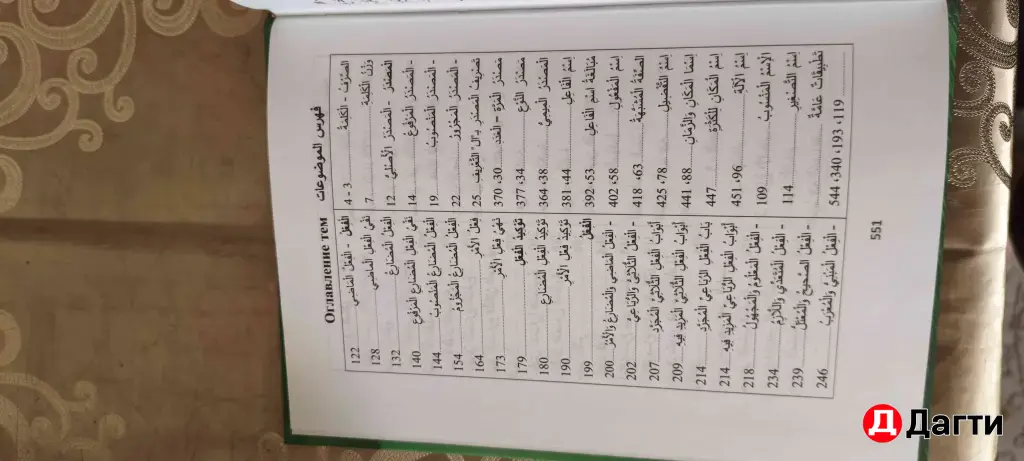 Оглавление тем فهرس الموضوعات
الصَّرْفُ - الْكَلِمَةُ 3 - 4
وَزْنُ الْكَلِمَةِ 7
الْمَصْدَرُ - الْمَصْدَرُ الْأَصْلِيُّ 12
- الْمَصْدَرُ الْمَرْفُوعُ 14
- الْمَصْدَرُ الْمَنْصُوبُ 19
- الْمَصْدَرُ الْمَجْرُورُ 22
تَعْرِيفُ الْمَصْدَرِ بِـ"ال" التَّعْرِيفِ 25
مَصْدَرُ الْمَرَّةِ - الْعَدَدِ 30، 370
مَصْدَرُ النَّوْعِ 34، 377
الْمَصْدَرُ الْمِيمِيُّ 38، 364
اِسْمُ الْفَاعِلِ 44، 381
مُبَالَغَةُ اسْمِ الْفَاعِلِ 53، 392
اِسْمُ الْمَفْعُولِ 58، 402
الصِّفَةُ الْمُشَبَّهَةُ 63، 418
اِسْمُ التَّفْضِيلِ 78، 425
اِسْمَا الْمَكَانِ وَالزَّمَانِ 88، 441
اِسْمُ الْمَكَانِ لِلْكَثْرَةِ 447
اِسْمُ الْآلَةِ 96، 451
الْاِسْمُ الْمَنْسُوبُ 109
اِسْمُ التَّصْغِيرِ 114
تَطْبِيقَاتٌ عَامَّةٌ 119، 193، 340، 544
الْفِعْلُ - الْفِعْلُ الْمَاضِي 122
نَفْيُ الْفِعْلِ الْمَاضِي 128
الْفِعْلُ الْمُضَارِعُ 132
نَفْيُ الْفِعْلِ الْمُضَارِعِ الْمَرْفُوعِ 140
الْفِعْلُ الْمُضَارِعُ الْمَنْصُوبُ 144
الْفِعْلُ الْمُضَارِعُ الْمَجْزُومُ 154
فِعْلُ الْأَمْرِ 164
نَهْيُ فِعْلِ الْأَمْرِ 173
تَوْكِيدُ الْفِعْلِ 179
تَوْكِيدُ الْفِعْلِ الْمُضَارِعِ 180
تَوْكِيدُ فِعْلِ الْأَمْرِ 190
الْفِعْلُ 199
- الْفِعْلُ الْمَاضِي وَالْمُضَارِعُ وَالْأَمْرُ 200
- الْفِعْلُ الثُّلَاثِيُّ وَالرُّبَاعِيُّ 202
أَبْوَابُ الْفِعْلِ الثُّلَاثِيِّ الْمُجَرَّدِ 207
أَبْوَابُ الْفِعْلِ الثُّلَاثِيِّ الْمَزِيدِ فِيهِ 209
بَابُ الْفِعْلِ الرُّبَاعِيِّ الْمُجَرَّدِ 214
أَبْوَابُ الْفِعْلِ الرُّبَاعِيِّ الْمَزِيدِ فِيهِ 214
- الْفِعْلُ الْمَعْلُومُ وَالْمَجْهُولُ 218
- الْفِعْلُ الْمُتَعَدِّي وَاللَّازِمُ 234
- الْفِعْلُ الصَّحِيحُ وَالْمُعْتَلُّ 239
- الْفِعْلُ الْمَبْنِيُّ وَالْمُعْرَبُ 246
551
Д Дагти